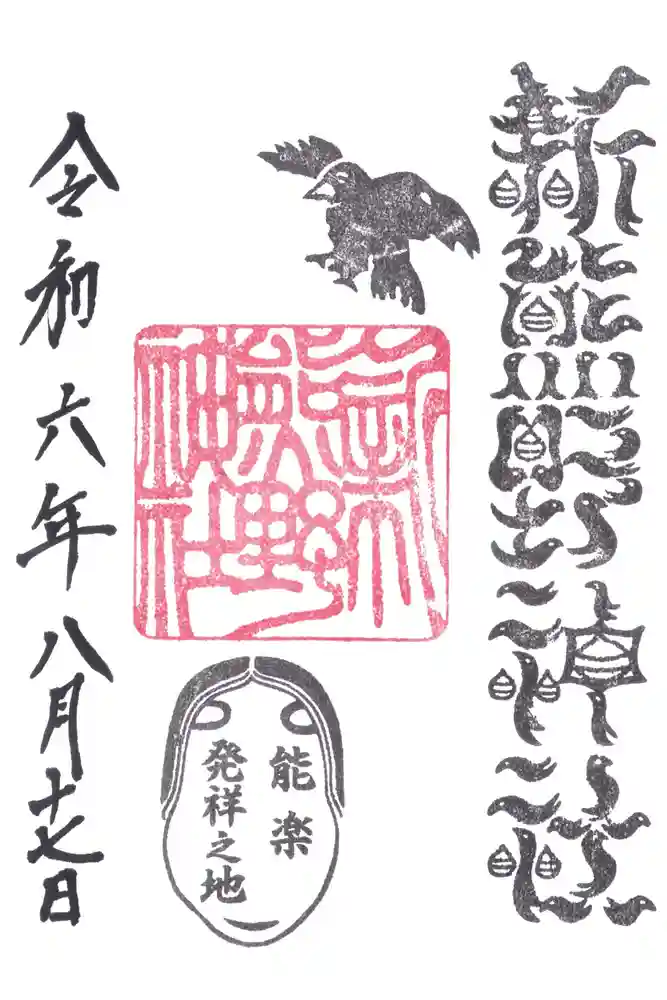 新熊野神社
新熊野神社
能楽
発祥之地
令和六年八月十七日